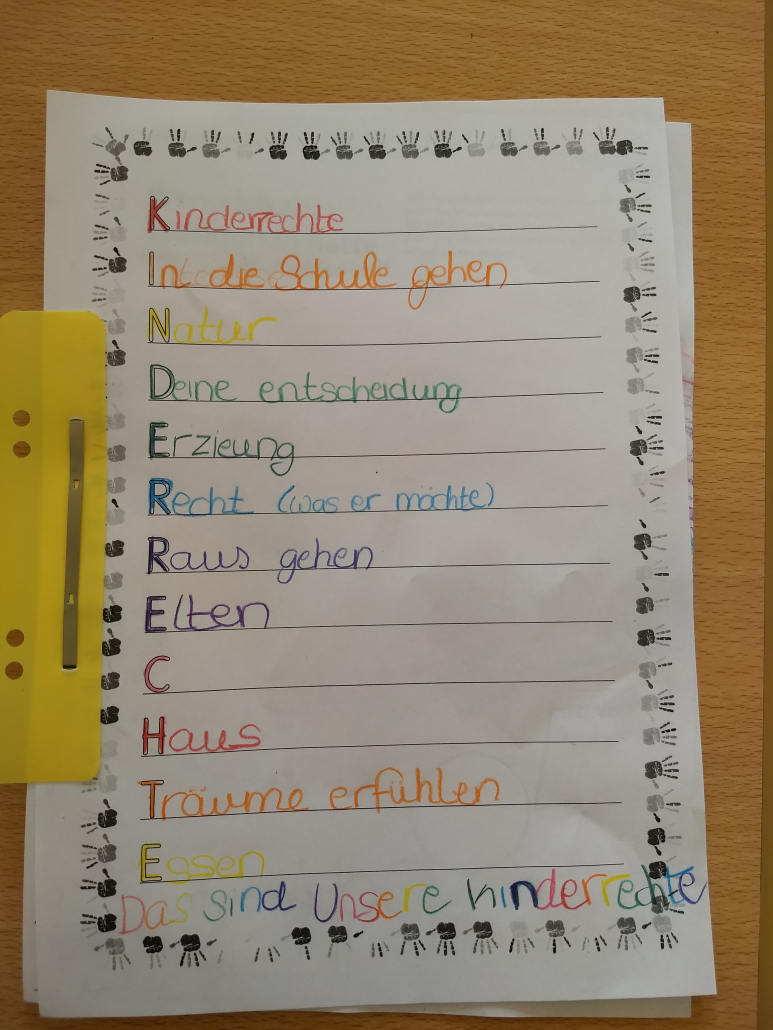 Kinderrechte
In die Schule gehen
Natur
Deine entscheidung
Erzieung
Recht (was er möchte)
Raus gehen
Elten
C
Haus
Träume erfühlen
Essen
Das sind Unsere kinderrechte